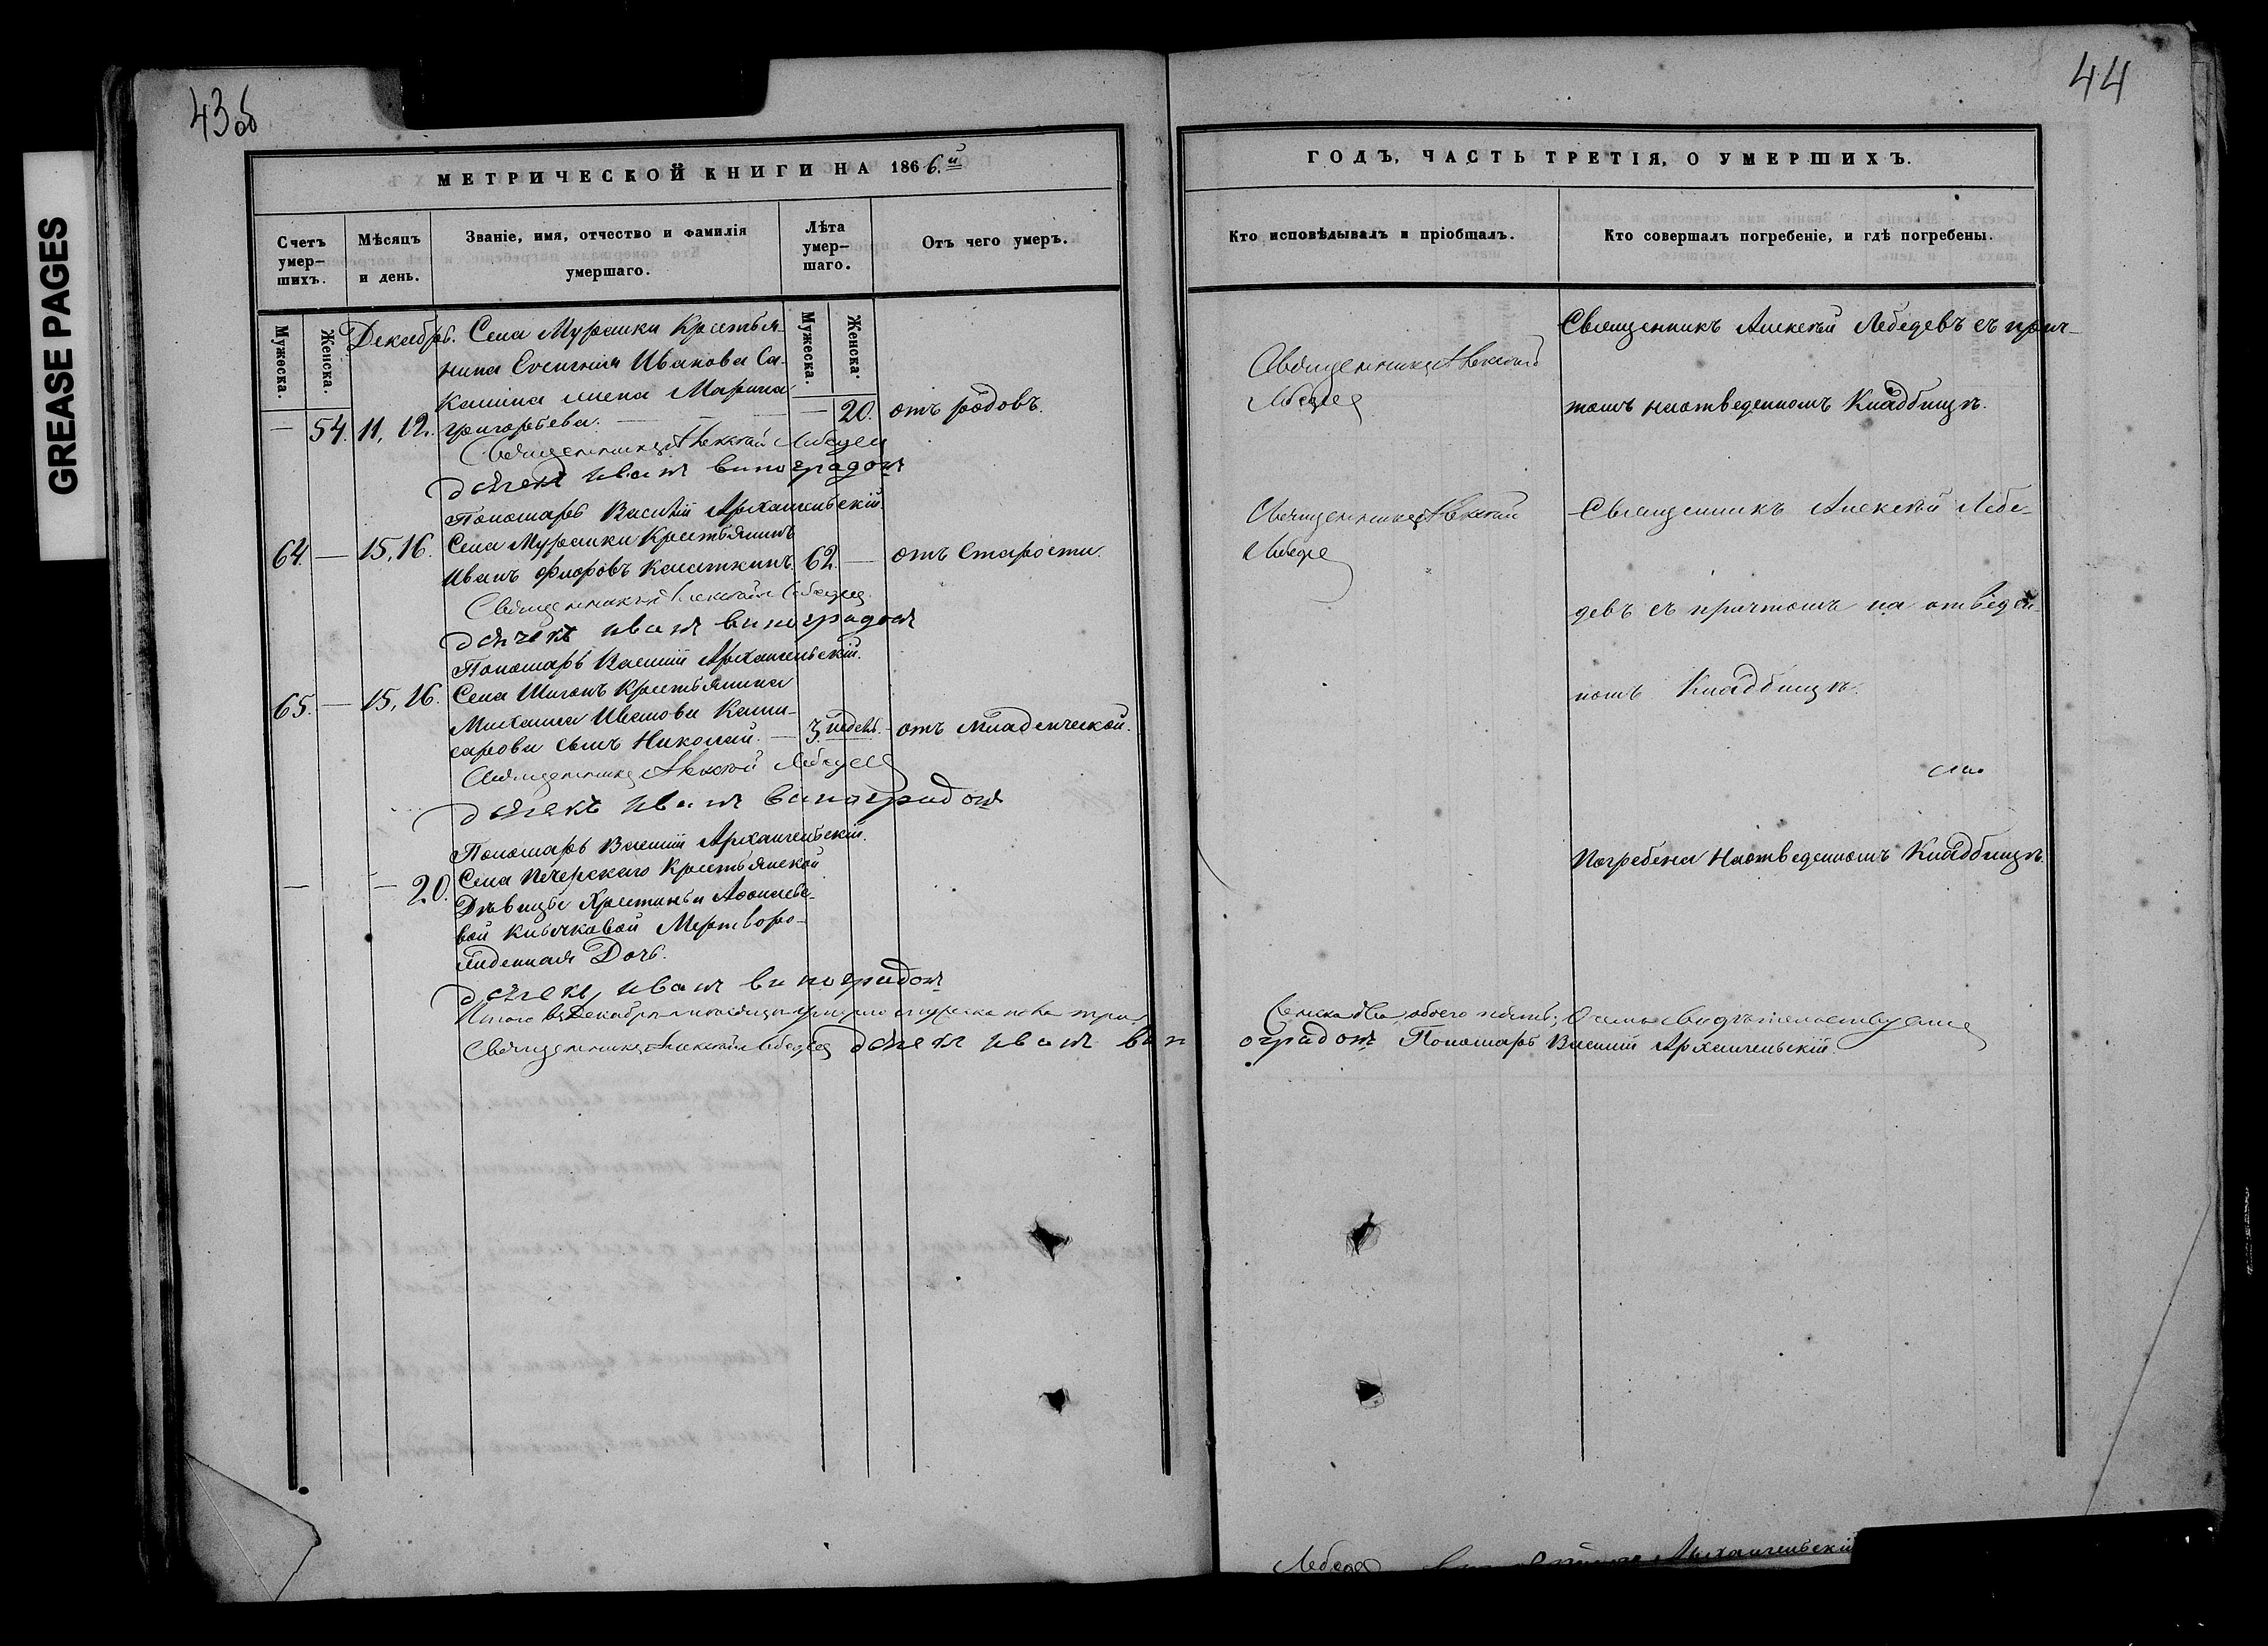 GREASE PAGES
43об
МЕТРИЧЕСКОЙ КНИГИ НА 1866.й
Счетъ умер-
шихъ.
Мѣсяцъ
и день.
Званіе, имя, отчество и фамилія
умершаго.
Лѣта
умер-
шаго.
Отъ чего умеръ.
Мужеска.
Женска.
Мужеска.
Женска.
Декабрь. Села Муранки Крестья-
нина Евгенія Иванова Са-
кашна жена Марина
— 54. 11, 12. Григорьева. — 20. отъ родовъ.
Священникъ Алексѣй Лебедев
дьячекъ иван виноградов
Пономарь Василій Архангельскій.
64. — 15, 16. Села Муранки Крестьянинъ
Иванъ Флоровъ 62. — отъ Старости.
Священникъ Алексѣй Лебедев
дьячекъ иван виноградов
Пономарь Василій Архангельскій.
65. — 15, 16. Села Шигонъ Крестьянина
Михаила Иванова Коми-
сарова сынъ Николай. — 3. недѣл. — отъ младенческой.
Священникъ Алексѣй Лебедев
дьячекъ иван виноградов
Пономарь Василій Архангельскій.
— — 20. Села Печерскаго Крестьянской
Дѣвицы Христиньи
вой Мертворо-
жденная Дочь.
дьячекъ иван виноградов
Итого въ Декабрѣ мѣсяцѣ умерло мужеска пола три,
Священникъ Алексѣй Лебедев дьячекъ иван вин
44
ГОДЪ, ЧАСТЬ ТРЕТІЯ, О УМЕРШИХЪ.
Кто исповѣдывалъ и пріобщалъ.
Кто совершалъ погребеніе, и гдѣ погребены.
Священникъ Алексѣй Лебедевъ съ прич-
Священникъ Алексѣй
Лебедев
томъ наотведенномъ Кладбищѣ.
Священникъ Алексѣй
Лебедев
Священникъ Алексѣй Лебе-
девъ съ причтомъ на отведен-
номъ Кладбищѣ.
Погребена Наотведенномъ Кладбищѣ.
Женска два, обоего пять;
оградов Пономарь Василій Архангельскій.
Лебедев Архангельскій